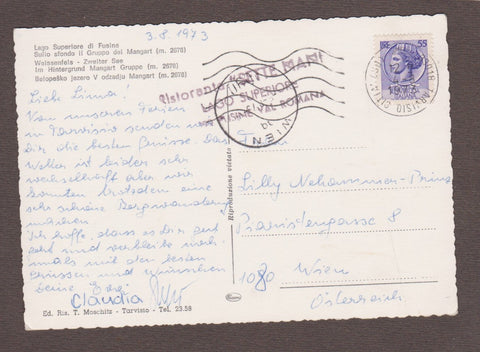 3.8.1973
Lago Superiore di Fusine
Sullo sfondo il Gruppo del Mangart (m. 2678)
Weissenfels - Zweiter See
Im Hintergrund Mangart Gruppe (m. 2678)
Belopeško jezero V odzadju Mangart (m. 2678)
Ristorante
LAGO SUPERIORE
VAL ROMANA
WIEN
55
TARVISIO
Liebe
Von unseren Ferien
in Tarvisio senden wir
dir die besten Grüsse. Das
Wetter ist leider sehr
wechselhaft aber wir
konnten trotzdem eine
sehr schöne Bergwanderung
machen.
Ich hoffe, dass es dir gut
geht und verbleibe noch-
mals mit den besten
Grüssen und Wünschen
deine
Claudia
Riproduzione vietata
Lilly
8
1080 Wien
Österreich
Ed. Ris. T. Moschitz - Tarvisio - Tel. 23.58